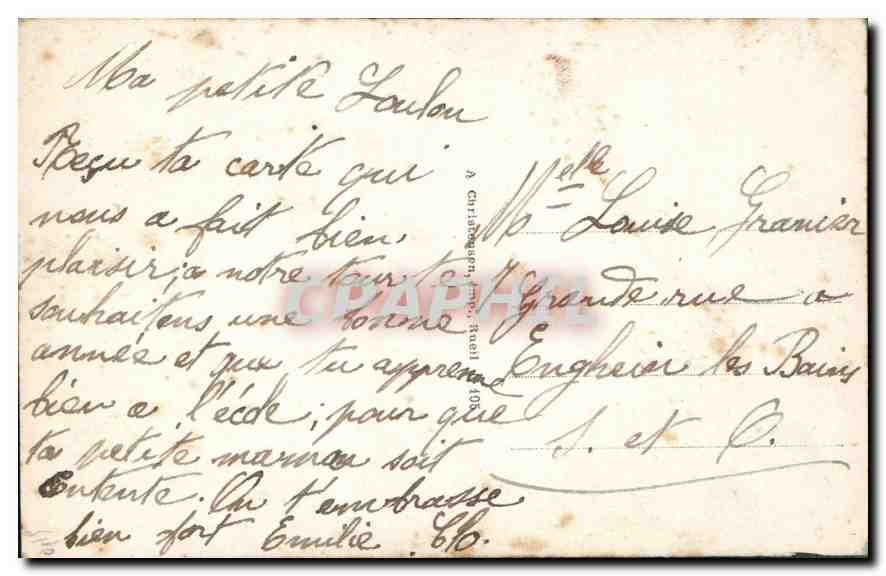 Ma petite Loulou
Reçu ta carte qui
nous a fait bien
plaisir, a notre tour te
souhaitons une bonne
année et que tu apprenne
bien a l'école; pour que
ta petite maman soit
contente. On t'embrasse
bien fort Emilie
A Christenson, Imp., Rueil
105
Melle Louise Granier
7 Grande rue a
Enghein les Bains
S. et O.
CPAPHIL